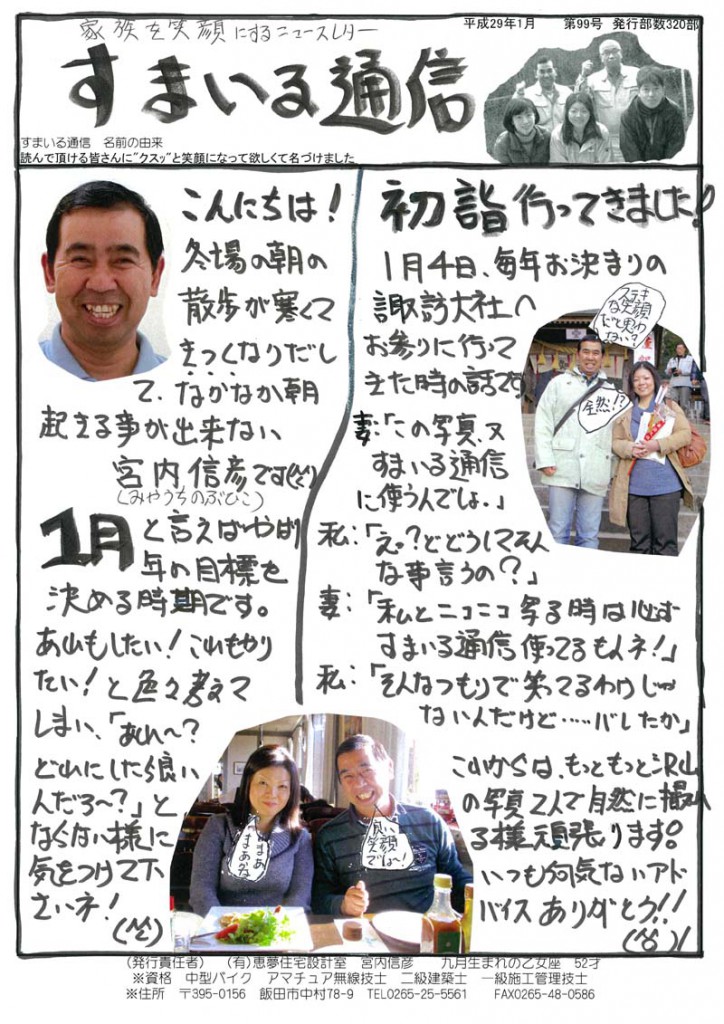 家族を笑顔にするニュースレター
平成29年1月　第99号　発行部数320部
すまいる通信
すまいる通信　名前の由来
読んで頂ける皆さんに"クスッ"と笑顔になって欲しくて名づけました
こんにちは！
冬場の朝の
散歩が寒くて
きつくなりだし
て、なかなか朝
起きる事が出来ない
宮内信彦です(笑)
(みやうちのぶひこ)
1月と言えばやはり
年の目標を
決める時期です。
あれもしたい！これもやり
たい！と色々考えて
しまい、「あれ〜？
どれにしたら良い
んだろ〜？」と
ならない様に
気をつけて下
さいネ！
(笑)
初詣行ってきました！
1月4日、毎年お決まりの
諏訪大社へ
お参りに行って
きた時の話です
妻:「この写真、又
すまいる通信
に使うんでしょ。」
私:「え。？どどうしてそん
な事言うの？」
妻:「私とニコニコ写る時は必ず
すまいる通信使ってるもんネ！」
私:「そんなつもりで笑ってるわけじゃ
ないんだけど……バレたか」
ステキ
な笑顔
だと思わ
ない？
全然！？
まあ
まあかな
良い
笑顔
でな〜！
これからは、もっともっと沢山
の写真2人で自然に撮れ
る様頑張ります。
いつも何気ないアド
バイスありがとう!!
(笑)
(発行責任者)　(有)恵夢住宅設計室　宮内信彦　九月生まれの乙女座　52才
※資格　中型バイク　アマチュア無線技士　二級建築士　一級施工管理技士
※住所　〒395-0156　飯田市中村78-9　TEL0265-25-5561　FAX0265-48-0586